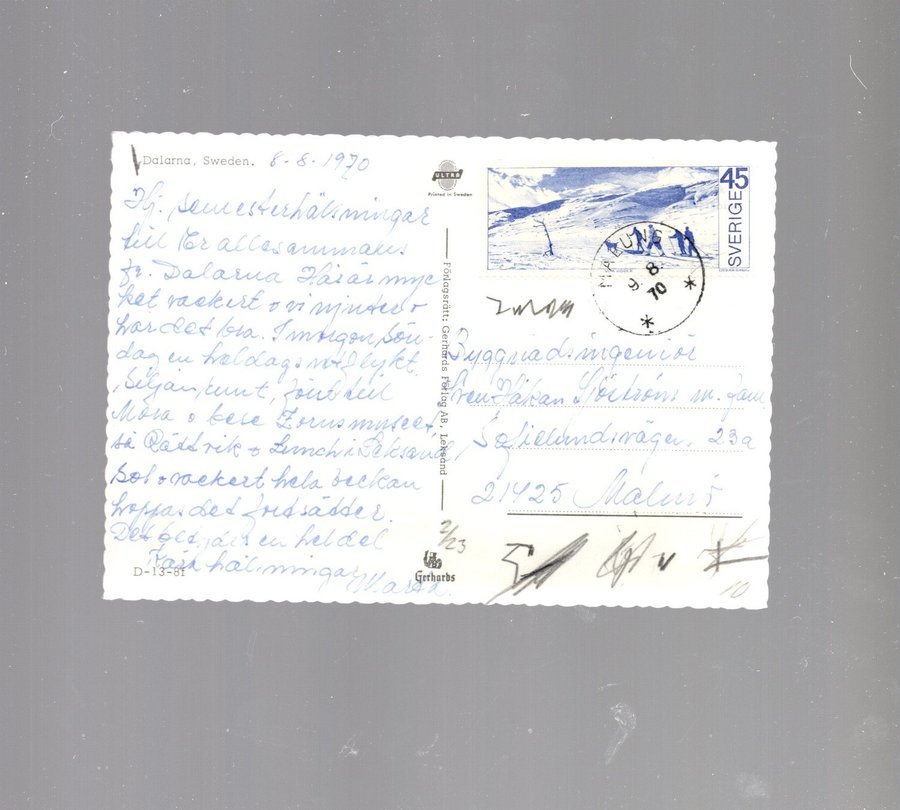 Dalarna, Sweden. 8-8-1970
Hj. Semesterhälsningar
till Er allesammans
fr. Dalarna Här är myc
ket vackert o vi njuter o
har det bra. I morgon sön-
dag en heldagsutflykt.
Siljan runt, först till
Mora o bese Zornsmuseet
så Rättvik o Lunch i Leksand,
Sol o vackert hela veckan
hoppas det fortsätter.
Det betyder en hel del
Kära hälsningar
Märta.
D-13-81
ULTRA
Printed in Sweden
Förlagsrätt: Gerhards Förlag AB, Leksand
2/23
Gerhards
45
SVERIGE
MALUNG
9. 8.
70
Byggnadsingeniör
Sven-Håkan Sjöströms m. fam
Sofielundsvägen 23a
21425 Malmö
10